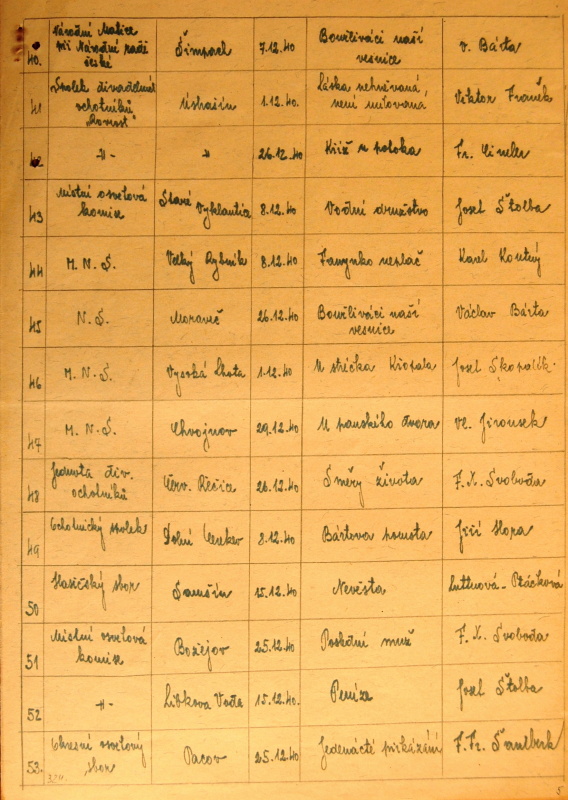 40. Národní Matice
při Národní radě
české Šimpach 7.12.40 Bouřliváci naší
vesnice V. Bárta
41 Spolek divadelních
ochotníků
"Rozrost" 1.12.40. Láska nehněvaná,
není milovaná, Viktor Franěk
42 -"- " 26.12.40 Kříž u potoka Fr. Cimler
43 Místní osvětová
komise Staré Vyklantice 8.12.40 Vodní družstvo Josef Štolba
44 M.N.Š. Velký Rybník 8.12.40 Fanynko neplač Karel Koutný
45 N.Š. Moraveč 26.12.40 Bouřliváci naší
vesnice Václav Bárta
46 M.N.Š. Vysoká Lhota 1.12.40 U strýčka Křópala Josef Skopalík.
47 M.N.Š. Chvojnov 29.12.40 U panského dvora Vl. Jirousek
48 Jednota div.
ochotníků Červ. Řečice 26.12.40 Směry života F.X. Svoboda
49 Ochotnický spolek Dolní Cerekev 8.12.40 Bártova pomsta Jiří Hora
50 Hasičský sbor Samšín 15.12.40 Nevěsta Luttnová-Ptáčková
51 Místní osvětová
komise Božejov 25.12.40 Poslední muž F.X. Svoboda
52 -"- Libkova Voda 15.12.40. Peníze Josef Štolba
53. Okresní osvětový
sbor Pacov 25.12.40 Jedenácté přikázání F.Fr. Šamberk
5